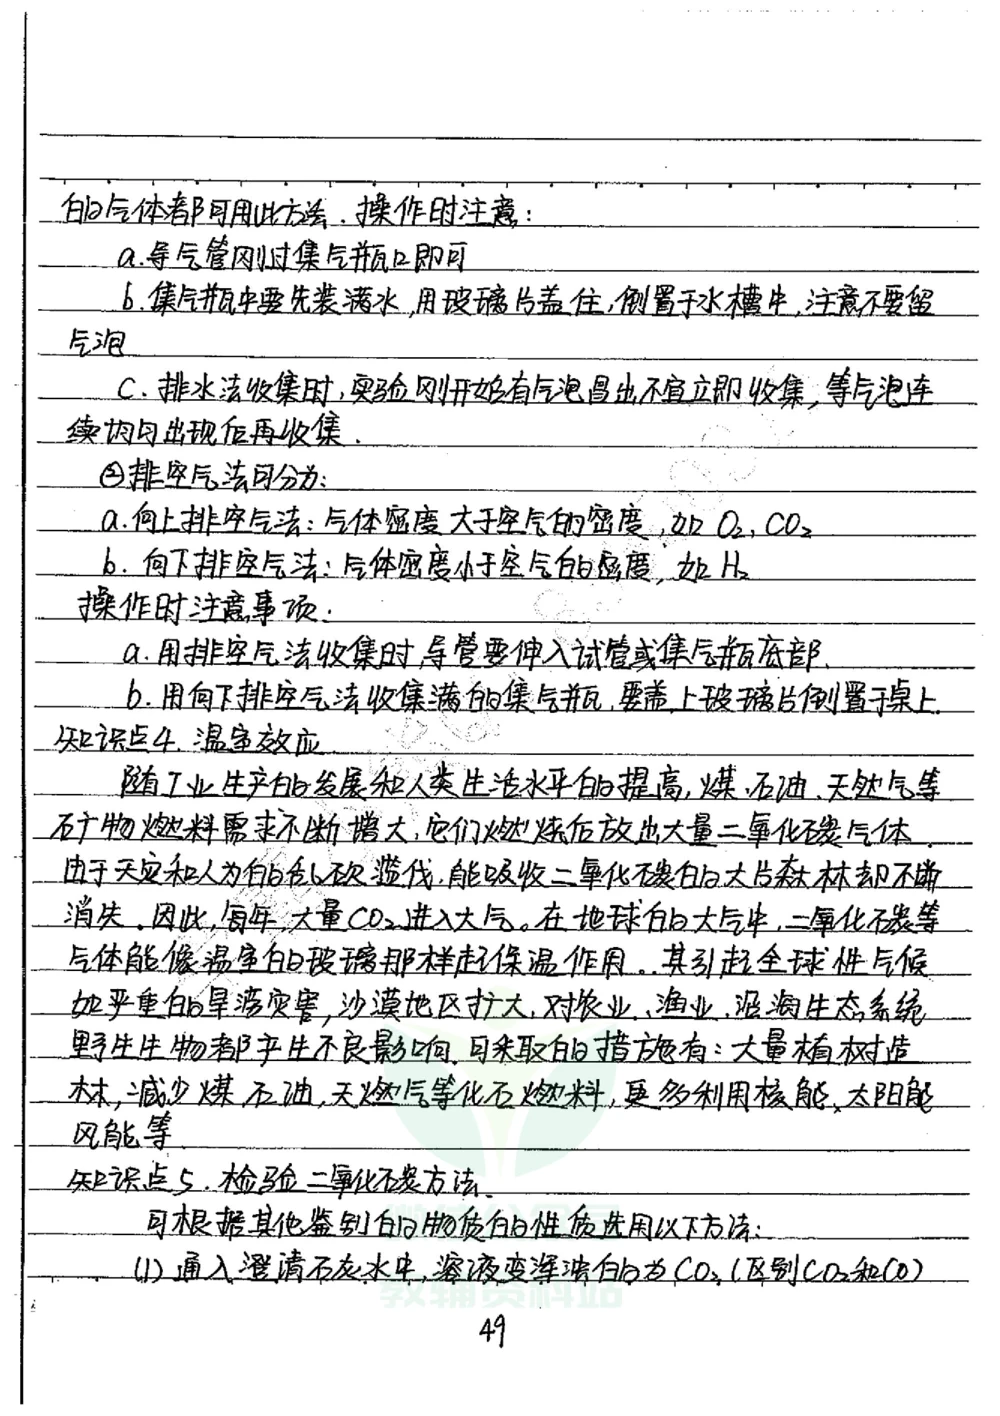 的气体都可用此方法.操作时注意:
a.导气管刚过集气瓶口即可
b.集气瓶中要先装满水,用玻璃片盖住,倒置于水槽中,注意不要留
气泡
C.排水法收集时,实验刚开始有气泡冒出不宜立即收集,等气泡连
续均匀出现后再收集.
②排空气法可分为:
a.向上排空气法:气体密度大于空气的密度,如O₂,CO₂
b.向下排空气法:气体密度小于空气的密度,如H₂
操作时注意事项:
a.用排空气法收集时,导管要伸入试管或集气瓶底部.
b.用向下排空气法收集满的集气瓶,要盖上玻璃片倒置于桌上.
知识点4.温室效应
随工业生产的发展和人类生活水平的提高,煤、石油、天然气等
矿物燃料需求不断增大,它们燃烧后放出大量二氧化碳气体.
由于天灾和人为的乱砍滥伐,能吸收二氧化碳的大片森林却不断
消失.因此,每年,大量CO₂进入大气。在地球的大气中,二氧化碳等
气体能像温室的玻璃那样起保温作用..其引起全球性气候
如严重的旱涝灾害,沙漠地区扩大,对农业、渔业、沿海生态系统
野生生物都产生不良影响.可采取的措施有:大量植树造
林,减少煤、石油,天燃气等化石燃料,更多利用核能、太阳能
风能等.
知识点5.检验二氧化碳方法.
可根据其他鉴别的物质的性质选用以下方法:
(1)通入澄清石灰水中,溶液变浑浊的为CO₂(区别CO₂和CO)
49
教辅资料站